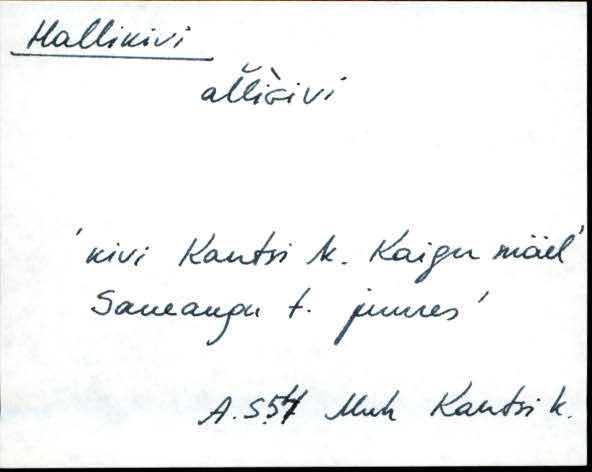 Hallikivi
allikivi
'kivi Kantsi k. Kaigu mäel
Saueaugu t. juures'
A.S57 Muh Kantsi k.